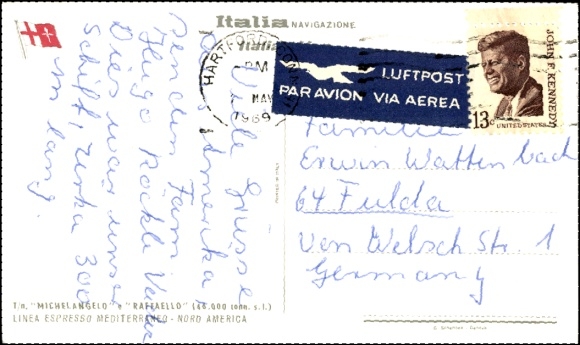 Italia NAVIGAZIONE
Italia
HARTFORD
PM
MAY
1969
LUFTPOST
PAR AVION VIA AEREA
JOHN F. KENNEDY
13c
UNITED STATES
Viele Grüsse
aus Amerika
senden Fam
Hugo Röckle
Dies war unser
Schiff, zirka 300
m lang.
Familie
Erwin Wattenbach
64 Fulda
Von Welsch Str. 1
Germany
T/n. "MICHELANGELO" e "RAFFAELLO" (46.000 tonn. s.l.)
LINEA ESPRESSO MEDITERRANEO - NORD AMERICA